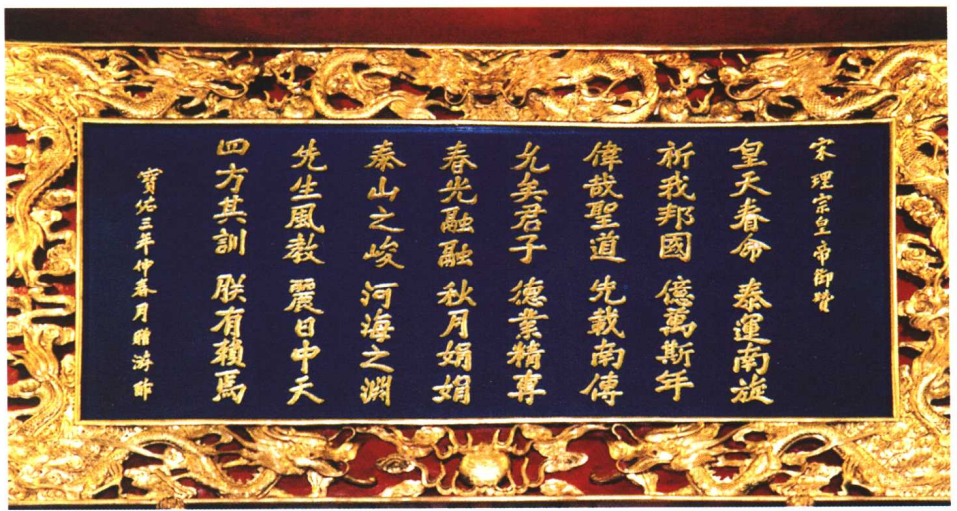 宋理宗皇帝御贊
皇天眷命 泰運南旋
祈我邦國 億萬斯年
偉哉聖道 先載南傳
允矣君子 德業精專
春光融融 秋月娟娟
泰山之峻 河海之淵
先生風教 麗日中天
四方其訓 朕有賴焉
寶佑三年仲春月贈游酢